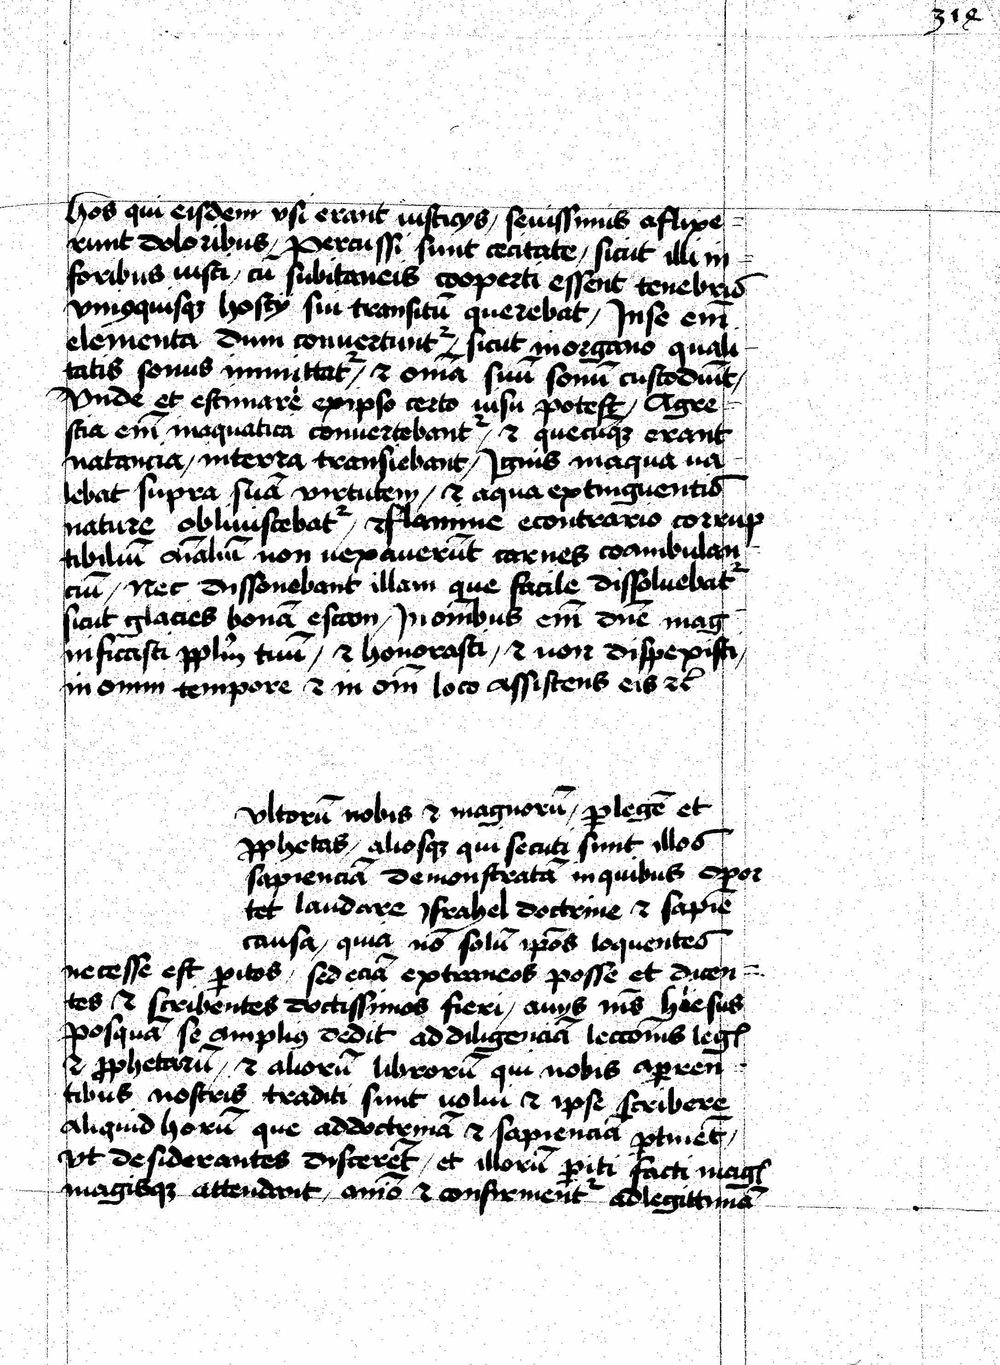 318
hos qui eisdem vsi erant iusticys / seuissimis aflixe-
runt doloribus / Percussi sunt cecitate / sicut illi in-
foribus iusti / cū subitaneis cooperti essent tenebris
vnꝰquisqꝫ hosty sui transitū querebat / Inse em̄
elementa dum conuertuntr̄ / sicut inorgano quali
tatis sonus immittatr̄ / ⁊ oīa suū sonū custodiūt /
Vnde et estimare exipso certo uisu potest / Agre-
stia em̄ inaquatica conuertebantr̄ / ⁊ quecūqꝫ erant
natancia / interra transiebant / Ignis inaqua ua-
lebat supra suā virtutem / ⁊ aqua extinguentis
nature obliuiscebatr̄ / ⁊ flamme econtrario corrup
tibiliū aīaliū non uexauerūt carnes coambulan-
ciū / Nec dissonebant illam que facile dissoluebatr̄
sicut glacies bonā escam / In oīnibus em̄ dn̄e mag
nificasti pplm̄ tuū / ⁊ honorasti / ⁊ non dispexisti /
in omni tempore ⁊ in om̄ loco assistens eis ⁊c̄
vltorū nobis ⁊ magnorū / ꝑ legē et
ꝓphetas / aliosqꝫ qui secuti sunt illos
sapienciā demonstratā inquibus opor
tet laudare Israhel doctrine ⁊ sapiē
causa / quia nō solū ip̄os loquentes
necesse est ꝑitos / sed eciā extraneos posse et dicen-
tes ⁊ scribentes doctissimos fieri / auus m̄s hiesus
posquā se amplius dedit addiligenciā leccōnis legꝭ
⁊ ꝓphetarū / ⁊ aliorū librorū qui nobis aparen-
tibus nostris traditi sunt uolui ⁊ ipse scribere
aliquid horū que addoctrinā ⁊ sapienciā ꝑtinēt /
vt desiderantes discerēt / et illorū ꝑiti facti magꝭ
magisqꝫ attendant / aīō ⁊ confirmentr̄ adlegittimā